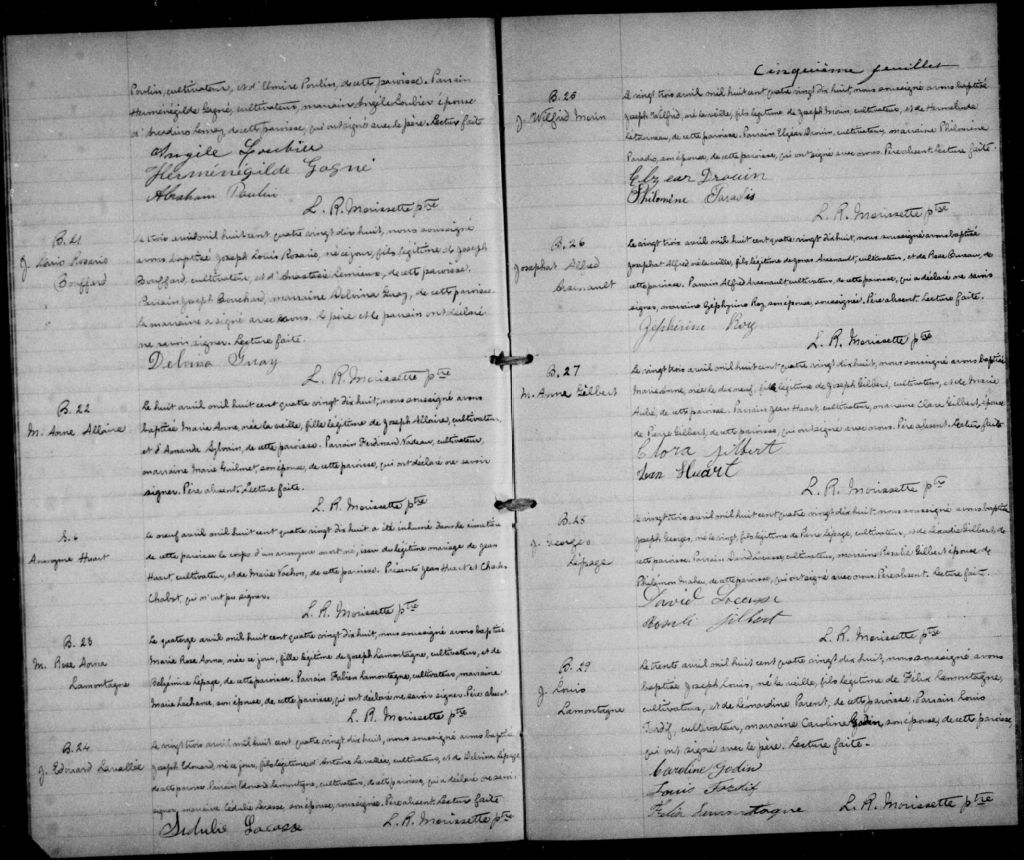 Poulin, cultivateur, et d'Elmire Poulin, de cette paroisse. Parrain
Herménégilde Gagné, cultivateur, marraine Angèle Loubier épouse
de cette paroisse, qui ont signé avec le père. Lecture faite
Angèle Loubier
Herménégilde Gagné
Abraham Poulin
L. R. Morissette ptre
B. 21
J. Louis Rosario
Bouffard
Le trois avril mil huit cent quatre vingt dix huit, nous soussigné
avons baptisé Joseph Louis Rosario, né ce jour, fils légitime de Joseph
Bouffard, cultivateur, et d'Anastasie Lemieux, de cette paroisse.
Parrain Joseph Bouchard, marraine Delvina Guay, de cette paroisse.
La marraine a signé avec nous. Le père et le parrain ont déclaré
ne savoir signer. Lecture faite.
Delvina Guay
L. R. Morissette ptre
B. 22
M. Anne Allaire
Le huit avril mil huit cent quatre vingt dix huit, nous soussigné avons
baptisé Marie Anne, née la veille, fille légitime de Joseph Allaire, cultivateur,
et d'Amanda Sylvain, de cette paroisse. Parrain Ferdinand Nadeau, cultivateur,
marraine Marie Guilmet, son épouse, de cette paroisse, qui ont déclaré ne savoir
signer. Père absent. Lecture faite.
L. R. Morissette ptre
S. 6
Anonyme Huart
Le neuf avril mil huit cent quatre vingt dix huit a été inhumé dans le cimetière
de cette paroisse le corps d'un anonyme mort né, issu du légitime mariage de Jean
Huart, cultivateur, et de Marie Vachon, de cette paroisse. Présents Jean Huart et Charles
Chabot, qui n'ont pu signer.
L. R. Morissette ptre
B. 23
M. Rose Anna
Lamontagne
Le quatorze avril mil huit cent quatre vingt dix huit, nous soussigné avons baptisé
Marie Rose Anna, née ce jour, fille légitime de Joseph Lamontagne, cultivateur, et de
Belzémire Lepage, de cette paroisse. Parrain Fabien Lamontagne, cultivateur, marraine
Marie Lachance, son épouse, de cette paroisse, qui ont déclaré ne savoir signer. Père absent
L. R. Morissette ptre
B. 24
J. Edouard Lavallée
Le vingt trois avril mil huit cent quatre vingt dix huit, nous soussigné avons baptisé
Joseph Edouard, né ce jour, fils légitime d'Antoine Lavallée, cultivateur, et de Delvina Lepage,
de cette paroisse. Parrain Edouard Lamontagne, cultivateur, de cette paroisse, qui a déclaré ne savoir
signer, marraine Sedulie Lacasse, son épouse, soussignée. Père absent. Lecture faite
Sedulie Lacasse
L. R. Morissette ptre
Cinquième feuillet
B. 25
J. Wilfrid Morin
Le vingt trois avril mil huit cent quatre vingt dix huit, nous soussigné avons baptisé
Joseph Wilfrid, né la veille, fils légitime de Joseph Morin, cultivateur, et de
de cette paroisse. Parrain Elzéar Drouin, cultivateur, marraine Philomène
Paradis, son épouse, de cette paroisse, qui ont signé avec nous. Père absent. Lecture faite.
Elzear Drouin
Philomène Paradis
L. R. Morissette ptre
B. 26
Josephat Alfred
Arsenault
Le vingt trois avril mil huit cent quatre vingt dix huit, nous soussigné avons baptisé
Josephat Alfred né la veille, fils légitime de Arsenault, cultivateur, et de Rose Bureau, de
cette paroisse. Parrain Alfred Arsenault cultivateur, de cette paroisse, qui a déclaré ne savoir
signer, marraine Zéphyrine Roy son épouse, soussignée. Père absent. Lecture faite.
Zépherine Roy
L. R. Morissette ptre
B. 27
M. Anne Gilbert
Le vingt trois avril mil huit cent quatre vingt dix huit, nous soussigné avons baptisé
Marie Anne, née le dix neuf, fille légitime de Joseph Gilbert, cultivateur, et de Marie
Aubé, de cette paroisse. Parrain Jean Huart, cultivateur, marraine Clara Gilbert, épouse
de Pierre Gilbert, de cette paroisse, qui ont signé avec nous. Père absent. Lecture faite
Clora Gilbert
Jean Huart
L. R. Morissette ptre
B. 28
J. Georges
Lepage
Le vingt trois avril mil huit cent quatre vingt dix huit, nous soussigné avons baptisé
Joseph Georges, né le vingt, fils légitime de Pierre Lepage, cultivateur, et de Gilbert, de
cette paroisse. Parrain David Lacasse, cultivateur, marraine Rosalie Gilbert épouse de
Philémon Maheu, de cette paroisse, qui ont signé avec nous. Père absent. Lecture faite.
David Lacasse
Rosalie Gilbert
L. R. Morissette ptre
B. 29
J. Louis
Lamontagne
Le trente avril mil huit cent quatre vingt dix huit, nous soussigné avons
baptisé Joseph Louis, né la veille, fils légitime de Félix Lamontagne,
cultivateur, et de Léonardine Parent, de cette paroisse. Parrain Louis
Tardif, cultivateur, marraine Caroline Godin, son épouse, de cette paroisse,
qui ont signé avec le père. Lecture faite.
Caroline Godin
Louis Tardif
Felix Lamontagne
L. R. Morissette ptre